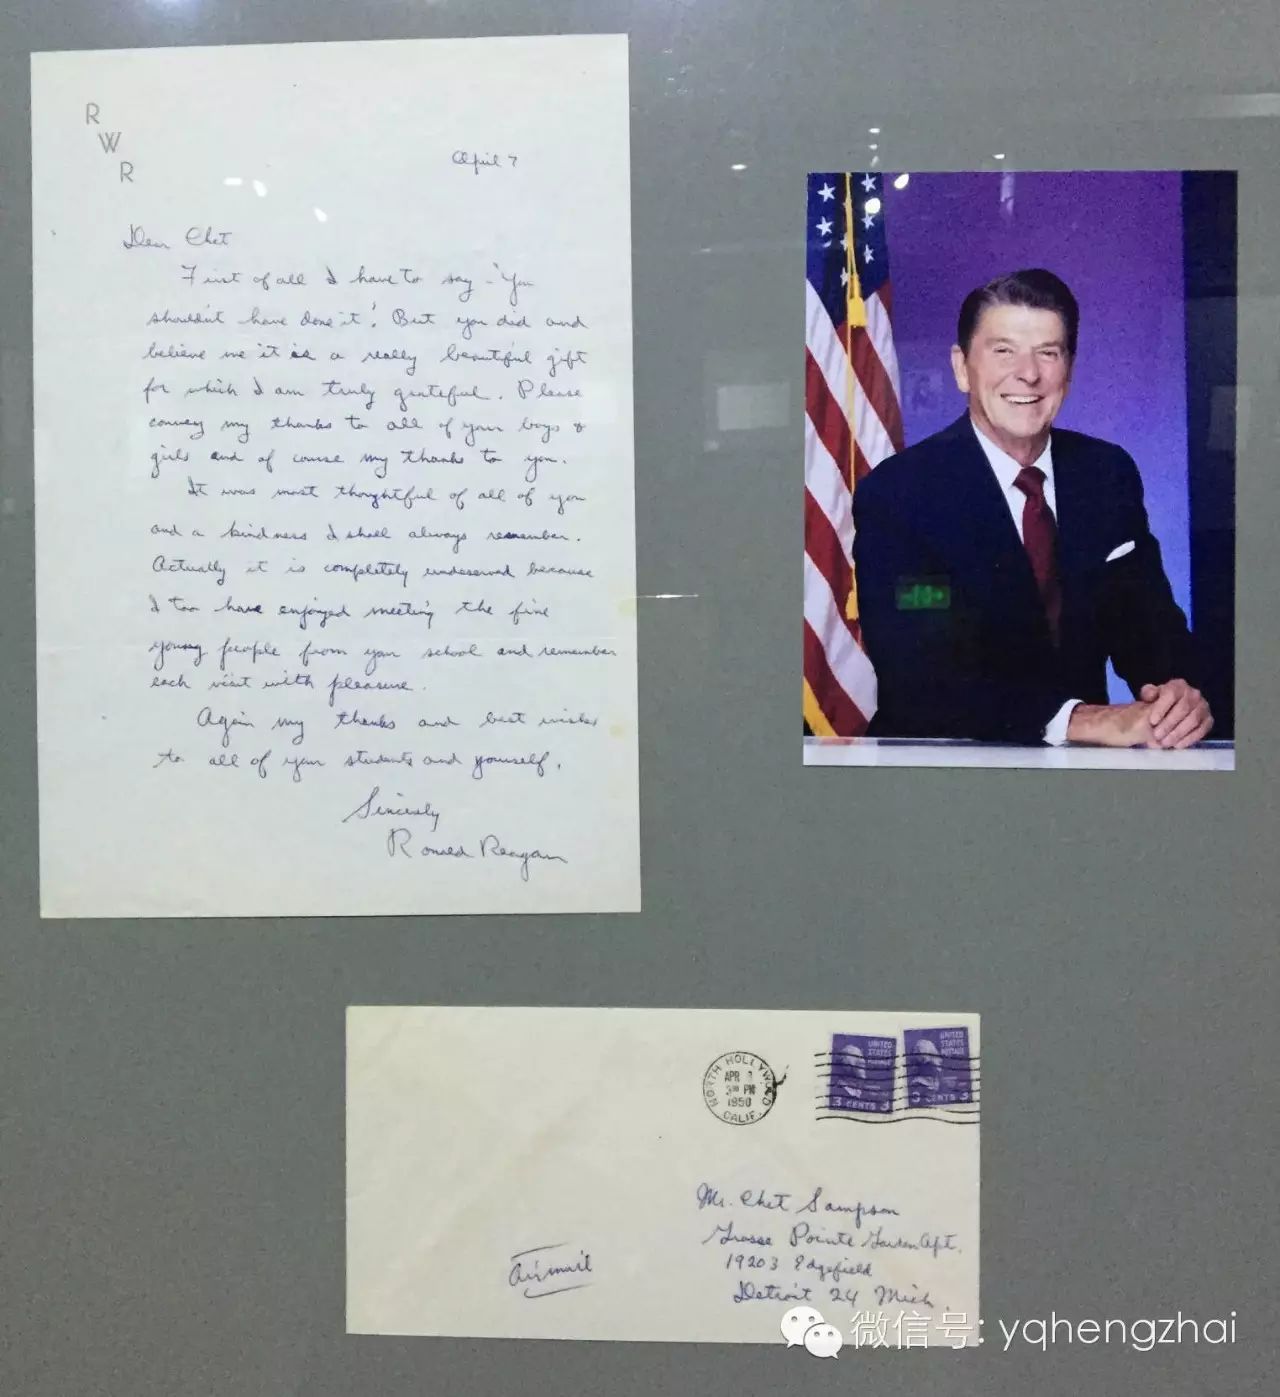 R
W
R
April 7
Dear Chet
First of all I have to say - "You
shouldn't have done it." But you did and
believe me it is a really beautiful gift
for which I am truly grateful. Please
convey my thanks to all of your boys &
girls and of course my thanks to you.
It was most thoughtful of all of you
and a kindness I shall always remember.
Actually it is completely undeserved because
I too have enjoyed meeting the fine
young people from your school and remember
each visit with pleasure.
Again my thanks and best wishes
to all of your students and yourself.
Sincerely
Ronald Reagan
NORTH HOLLYWOOD
APR
3 PM
1950
CALIF.
UNITED
STATES
POSTAGE
3 CENTS 3
UNITED
STATES
POSTAGE
3 CENTS 3
Mr. Chet Sampson
Grosse Pointe Garden Apt.
19203 Edgefield
Detroit 24 Mich.
Airmail
微信号: yqhengzhai